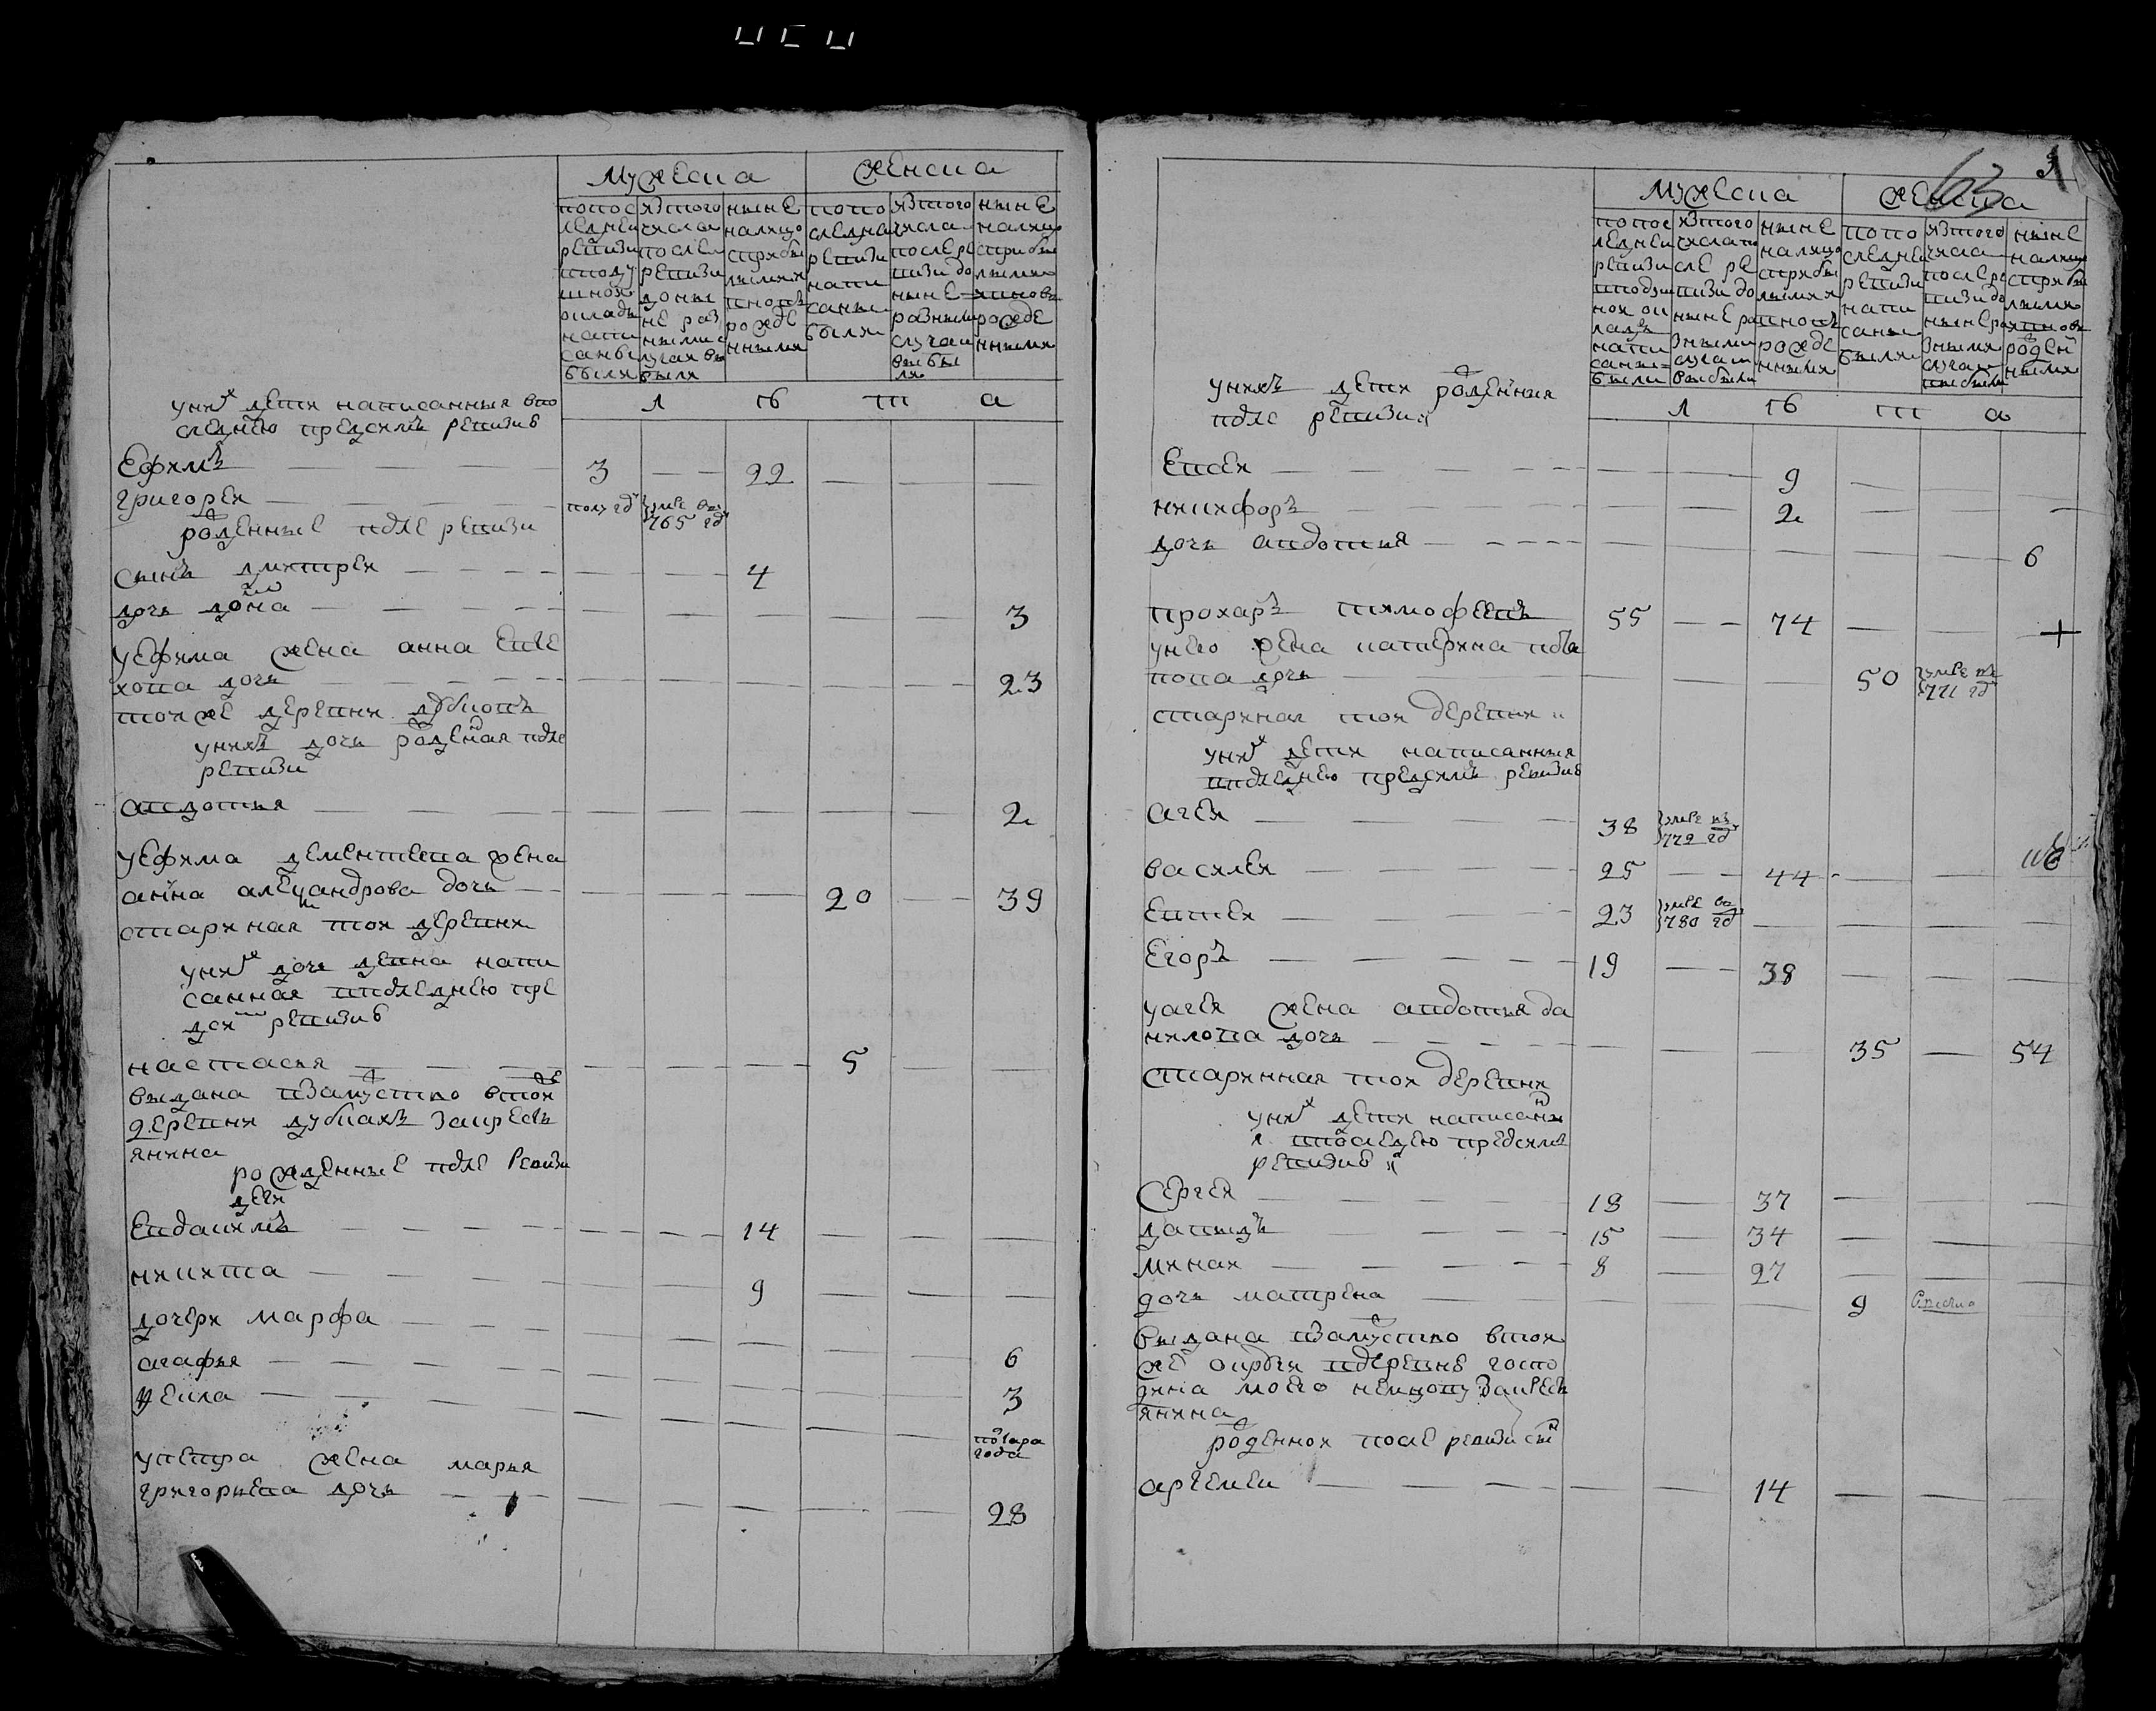 мужеска
женска
попос
леднеи
ревизи
вподу
шном
окладе
напи
саны
были
изтого
числа
послѣ
ревизи
доны
не раз
ными с
лучаи вы
были
ныне
налицо
сприбы
лыми и
вновь
рожде
нными
попо
следне
ревизи
напи
саны
были
изтого
числа
после ре
визи до
ныне
разными
случаи
выбы
ли
ныне
налицо
сприбы
лыми
ивновь
рожде
нными
л ѣ т а
уних дѣти написанныя впо
следнею предсимъ ревизиѣ
Ефимъ 3 22
григореи полугод умре въ 765 год
роденные после ревизи
сынъ дмитреи 4
дочь домна 3
уефима жена анна евсе
хова дочь 23
тои же деревни дубков
уних дочь роденая после
ревизи
авдотья 2
уефима дементьева жена
анна александрова дочь 20 39
старинная тои деревни
уних дочь девка напи
санная впоследнею пре
дсим ревизиѣ
настасья 5
выдана взамуство втои же
деревни дубках за кресть
янина
рожденные после ревизи
дети
Евдакимъ 14
никита 9
дочери марфа 6
агафья 3
фекла полтара года
упетра жена марья
григорьева дочь 28
63
мужеска
женска
попос
леднеи
ревизи
вподуш
ном ок
ладе
напи
саны
были
изтого
числа по
сле ре
визи до
ныне ра
зными
случаи
выбыли
ныне
налицо
сприбы
лыми и
вновь
рожде
нными
попо
следне
ревизи
напи
саны
были
изтого
числа
после ре
визи до
ныне ра
зными
случаи
выбыли
ныне
налицо
сприбы
лыми
ивновь
роден
ными
л ѣ т а
унихъ дети роденныя
после ревизи
Евсеи 9
никифоръ 2
дочь авдотья 6
прохаръ тимофеевъ 55 74
унего жена катерина
пова дочь 50 умре въ 771 год
старинная тои деревни
уних дети написанныя
впоследнею предсимъ ревизиѣ
агеи 38 умре въ 772 год
василеи 25 44
Евтеи 23 умре въ 780 год
Егоръ 19 38
уагея жена авдотья да
нилова дочь 35 54
старинная тои деревни
уних дети написаны
я впоследнею предсимъ
ревизиѣ
Сергеи 18 37
давыдъ 15 34
минаи 8 27
дочь матрена 9
выдана взамуство втои
же округи вдеревне госпо
дина моего за кресть
янина
роденнои после ревизи сын
аргемеи 14